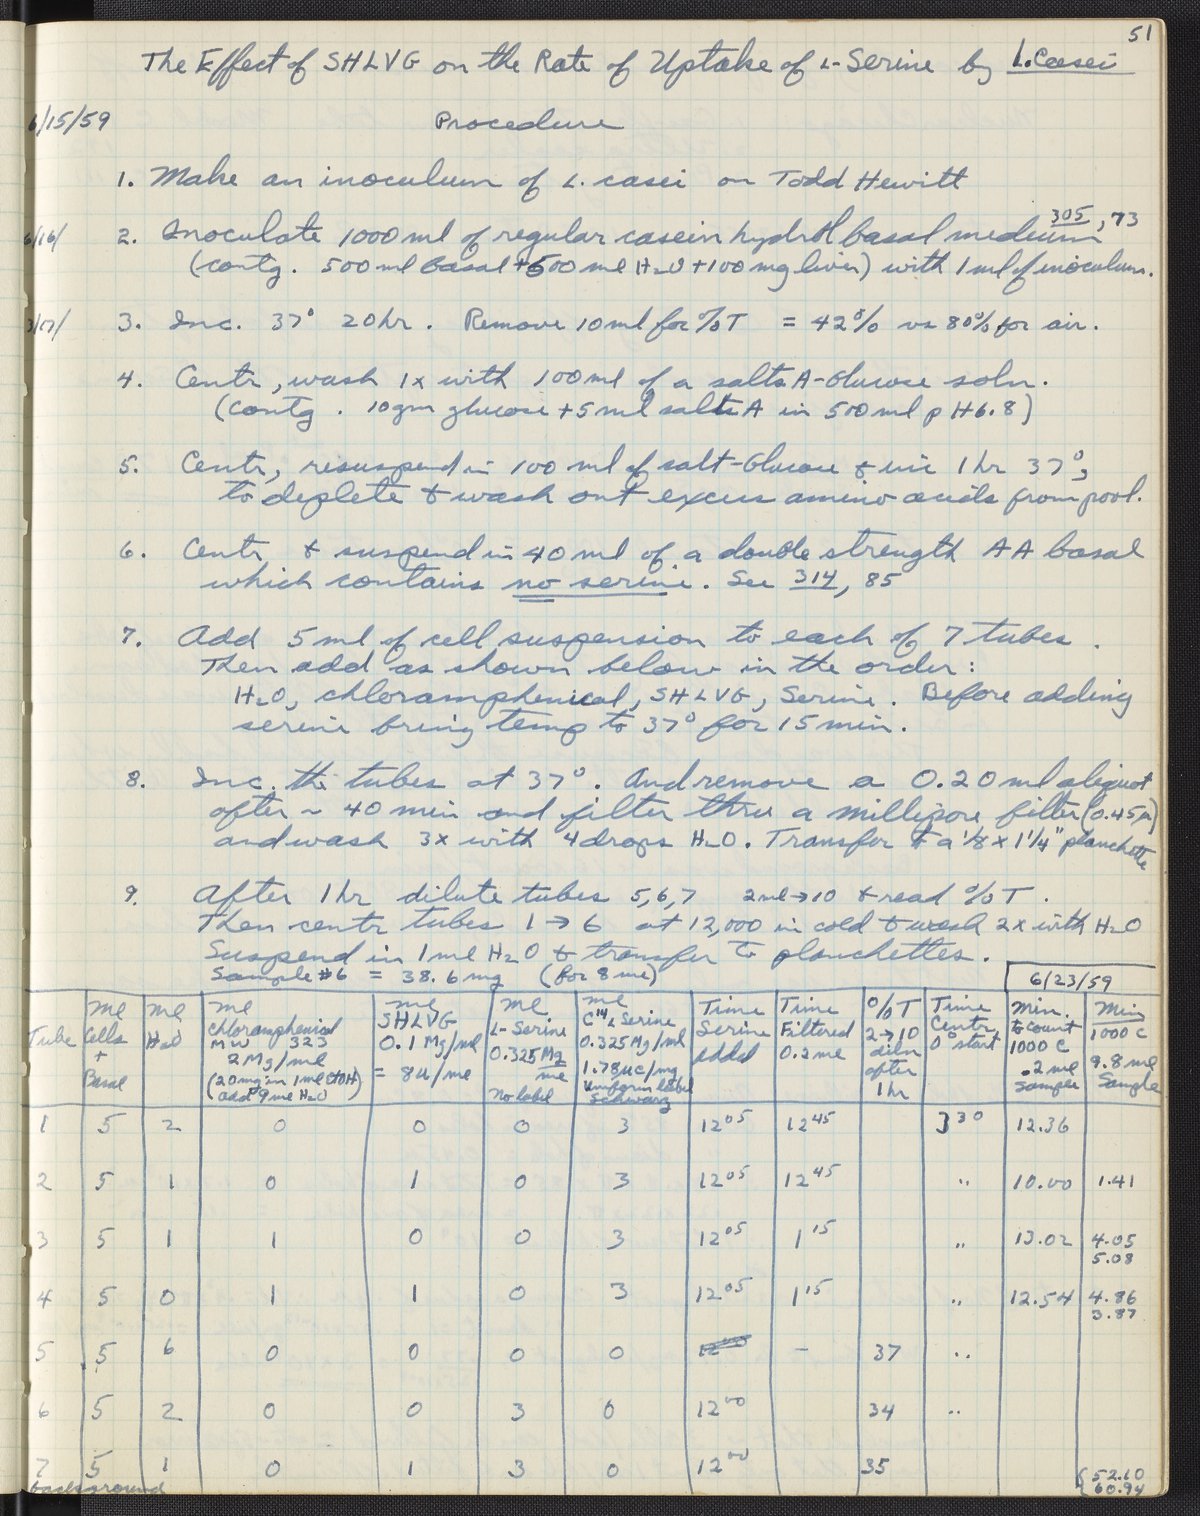 51
The Effect of SHLVG on the Rate of Uptake of L-Serine by L. Casei
6/15/59 Procedure
1. Make an inoculum of L. casei on Todd Hewitt
305, 73
6/16/ 2. Inoculate 1000 ml of regular casein hydrol basal medium
(contg. 500 ml Basal + 500 ml H2O + 100 mg liver) with 1 ml of inoculum.
3/17/ 3. Inc. 37° 20 hr. Remove 10 ml for %T = 42% vs 80% for air.
4. Centr, wash 1x with 100 ml of a salts A-Glucose soln.
(Contg. 10 gm glucose + 5 ml salts A in 500 ml pH 6.8)
5. Centr, resuspend in 100 ml of salt-Glucose & inc 1 hr 37°,
to deplete & wash out excess amino acids from pool.
6. Centr & suspend in 40 ml of a double strength AA basal
which contains no serine. See 314, 85
7. Add 5 ml of cell suspension to each of 7 tubes.
Then add as shown below in the order:
H2O, chloramphenical, SHLVG, Serine. Before adding
serine bring temp to 37° for 15 min.
8. Inc. the tubes at 37°. And remove a 0.20 ml aliquot
after ~ 40 min and filter thru a millipore filter (0.45µ)
and wash 3x with 4 drops H2O. Transfer to a 1/8 x 1 1/4" planchette
9. After 1 hr dilute tubes 5,6,7 2 ml → 10 & read %T.
Then centr tubes 1 → 6 at 12,000 in cold & wash 2x with H2O
Suspend in 1 ml H2O & transfer to planchettes.
Sample #6 = 38.6 mg (for 8 ml)
6/23/59
Tube | ml Cells + Basal | ml H2O | ml chloramphenical MW 323 2 Mg/ml (20 mg in 1 ml EtOH) add 9 ml H2O | ml SHLVG 0.1 Mg/ml = 8u/ml | ml L-Serine 0.325 Mg/ml no label | ml C14 L Serine 0.325 Mg/ml 1.78uc/mg Uniform label Schwarz | Time Serine added | Time Filtered 0.2 ml | %T 2→10 diln after 1 hr | Time Centr. 0° start | Min. to count 1000 C .2 ml Sample | Min 1000 C 9.8 ml Sample
1 5 2 0 0 0 3 12 05 12 45 3 30 12.36
2 5 1 0 1 0 3 12 05 12 45 " 10.00 1.41
3 5 1 1 0 0 3 12 05 1 15 " 13.02 4.05
5.08
4 5 0 1 1 0 3 12 05 1 15 " 12.54 4.86
3.87
5 5 6 0 0 0 0 – 37 "
6 5 2 0 0 3 0 12 00 34 "
7 5 1 0 1 3 0 12 00 35
background 52.10
60.94